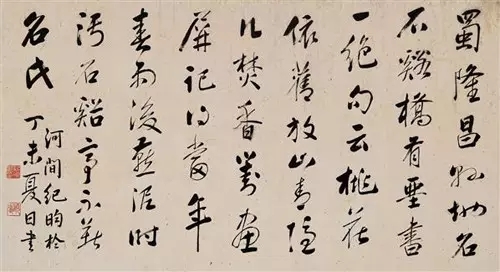 蜀隆昌名
石谿橋有書
一絕句云桃花
依舊放山青隱
几焚香對畫
屏記得當年
春雨後燕泥時
污石谿亭不著
名氏
河間紀昀於
丁未夏日書